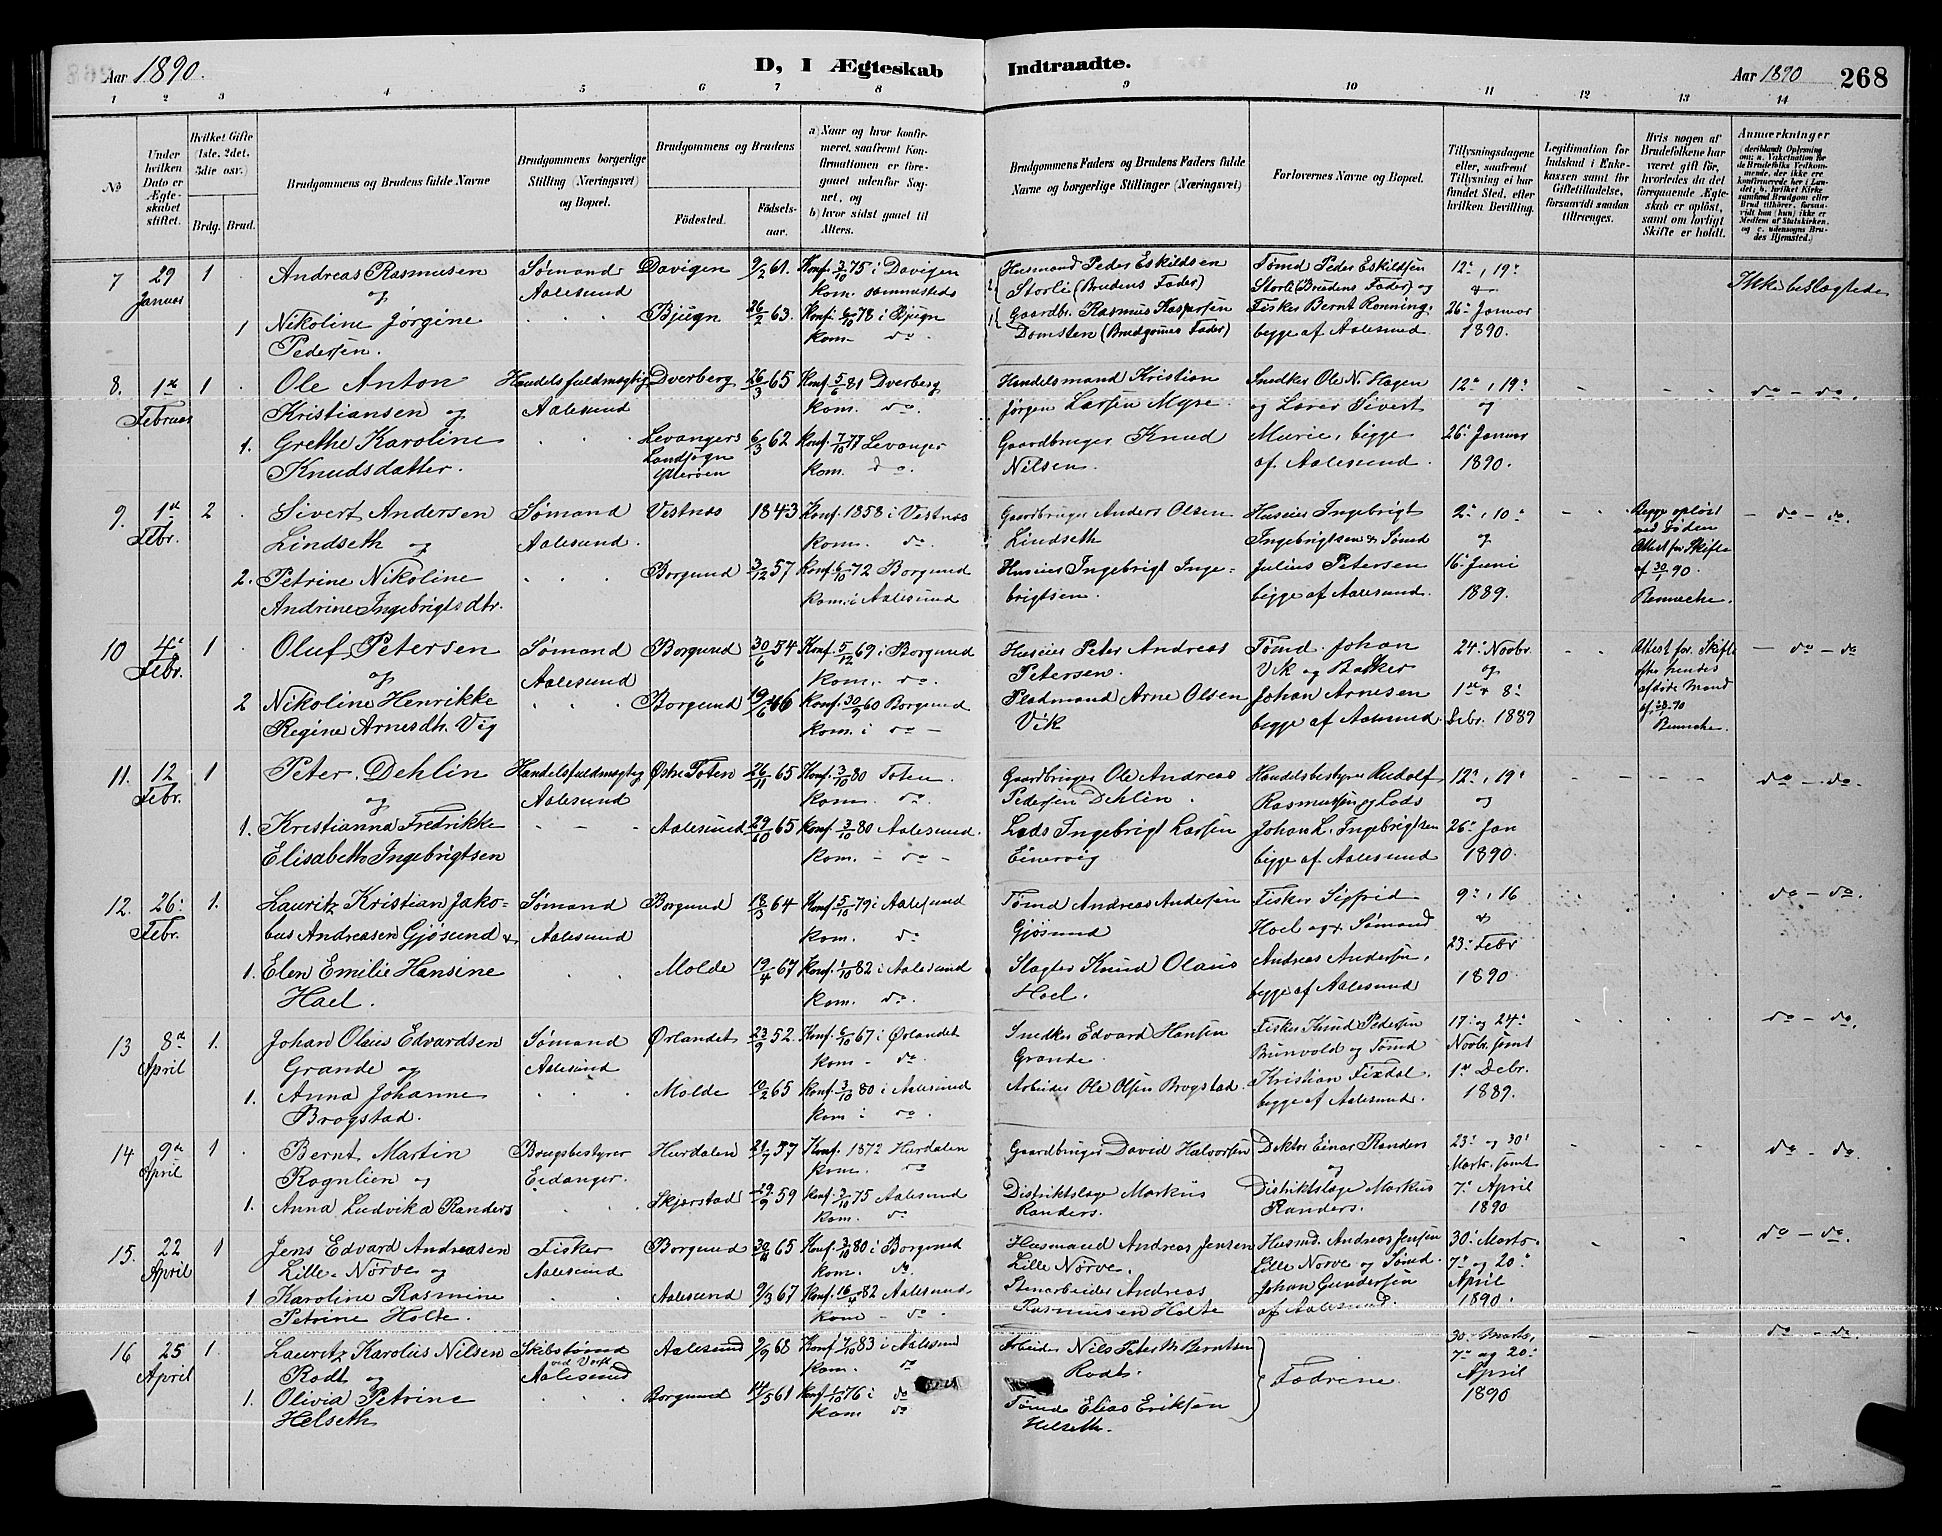 Aar 1890.
D, I Ægteskab Indtraadte.
Aar 1890 268
1 2 3 4 5 6 7 8 9 10 11 12 13 14
No
Under hvilken Dato er Ægteskabet stiftet.
Hvilket Gifte (1ste, 2det, 3die osv.)
Brdg. Brud.
Brudgommens og Brudens fulde Navne
Brudgommens borgerlige Stilling (Næringsvei) og Bopæl.
Brudgommens og Brudens
Fødested. Fødselsaar.
a) Naar og hvor konfirmeret, saafremt Konfirmationen er foregaaet udenfor Sognet, og
b) hvor sidst gaaet til Alters.
Brudgommens Faders og Brudens Faders fulde Navne og borgerlige Stillinger (Næringsvei)
Forlovernes Navne og Bopæl.
Tillysningsdagene eller, saafremt Tillysning ei har fundet Sted, efter hvilken Bevilling.
Legitimation for Indskud i Enkekassen samt for Giftetilladelse, forsaavidt saadan tiltrænges.
Hvis nogen af Brudefolkene har været gift før, hvorledes da det foregaaende Ægteskab er opløst, samt om lovligt Skifte er holdt.
Anmærkninger
7 29 1 Andreas Rasmusen Sømand Davigen 9/2 61. Konf. 3/10 75 i Davigen Husmand Peder Eskildsen Tømd Peder Eskildsen 12te, 19de Ikke beslægtede
Januar og Aalesund kom. sammesteds Storli (Brudens Fader) Storli (Brudens Fader) og &
1 Nikoline Jørgine Bjugn 26/2 63. Konf. 6/10 78 i Bjugn Gaardbr. Rasmus Kaspersen Fisker Bernt Rønning, 26de Januar
Pedersen. kom. do. Domsten (Brudgomes Fader) begge af Aalesund 1890.
8. 1ste 1 Ole Anton Handelsfuldmægtig Dverberg 26/3 65 Konf. 5/6 81 Dverberg Handelsmand Kristian Snedker Ole N. Hagen 12te, 19de do - do.
Februar Kristiansen og Aalesund kom. do. Jørgen Larsen Myre. og Lærer Sivert og
1. Grethe Karoline Levangers 6/3 62 Konf. 7/10 77 Levanger Gaardbruger Knud Murie, begge 26de Januar
Knudsdatter. Landsogn Ytterøen kom. do. Nilsen. af Aalesund. 1890.
9. 1ste 2 Sivert Andersen Sømand Vestnæs 1843 Konf. 1858 i Vestnæs Gaardbruger Anders Olsen Huseier Ingebrigt 2de, 10de Begge opløst - do - do.
Febr. Lindseth og Aalesund. kom. do. Lindseth Ingebrigtsen & Sømd og ved Døden
2. Petrine Nikoline Borgund 3/12 57 Konf. 6/10 72 Borgund Huseier Ingebrigt Inge- Julius Petersen 16de Juni Attest for Skifte af 30/1 90
Andrine Ingebrigtsdtr. kom. i Aalesund brigtsen. begge af Aalesund. 1889. Benneche.
10 4de 1 Oluf Petersen Sømand Borgund 30/6 54 Konf. 5/12 69 i Borgund Huseier Peter Andreas Tømd. Johan 24de Novbr. Attest for Skifte - do - do
Febr. og Aalesund kom. do. Petersen. Vik og Bakker og efter hendes
2 Nikoline Henrikke Borgund 19/6 46 Konf. 30/9 60 Borgund Pladsmand Arne Olsen Johan Arnesen 1ste & 8de afdøde Mand
Regine Arnesdtr. Vig kom. i do - Vik begge af Aalesund. Debr. 1889 Bennche.
11. 12 1 Peter Dehlin Handelsfuldmægtig Østre Toten 26/11 65 Konf. 3/10 80 Toten. Gaardbruger Ole Andreas Handelsbestyrer Rudolf 12te, 19de do - do.
Febr. og Aalesund kom. do. Pedersen Dehlin. Rasmussen og Lods og
1. Kristianna Fredrikke Aalesund 29/10 65 Konf. 3/10 80 Aalesund. Lods Ingebrigt Larsen Johan L. Ingebrigtsen 26de Jan
Elisabeth Ingebrigtsen kom. - do - Einervig begge af Aalesund 1890.
12. 26de 1. Lauritz Kristian Jako- Sømand Borgund 18/3 64 Konf. 5/10 79 i Aalesund Tømd Andreas Andersen Fisker Sigfrid 9de, 16 do - do.
Febr. bus Andreasen Gjøsund & Aalesund kom. do Gjøsund Hoel og Sømand &
1. Elen Emilie Hansine Molde 19/4 67 Konf. 1/10 82 i Aalesund Slagter Knud Olaus Andreas Andersen, 23de Febr
Hoel. kom. do. Hoel. begge af Aalesund 1890.
13 8de 1. Johan Olaus Edvardsen Sømand Ørlandet 23/9 52. Konf. 6/10 67 i Ørlandet Snedker Edvard Hansen Fisker Knud Pedersen 17de og 24de do - do.
April Grande og Aalesund kom - do. Grande. Brunvold og Tømd Novbr. samt
1. Anna Johanne Molde 10/2 65 Konf. 3/10 80 i Aalesund Arbeider Ole Olsen Brogstad. Kristian Fixdal, 1ste Debr.
Brogstad. kom i do. begge af Aalesund. 1889.
14 9de 1. Bernt Martin Brugsbestyrer Hurdalen 21/7 57 Konf. 1872 Hurdalen Gaardbruger David Halvorsen Doktor Einar Randers 23de og 30de do - do.
April Rognlien og Eidanger. kom. do og Marts. samt
1. Anna Ludvika Randers Skjerstad 29/9 59 Konf. 3/10 75 Aalesund Distriktslæge Markus Distriktslæge Markus 7de April
kom. do Randers. Randers. 1890
15. 22 1 Jens Edvard Andreasen Fisker Borgund 30/11 65 Konf. 3/10 80 i Borgund Husmand Andreas Jensen Husmd. Andreas Jensen 30de Marts do - do.
April Lille-Nørve og Aalesund kom. do. Lille Nørve. Lille Nørve og Sømd. 7de og 20de
1 Karoline Rasmine Aalesund 9/3 67 Konf. 16/4 82 Aalesund. Stenarbeider Andreas Johan Gundersen April
Petrine Holte. kom - do. Rasmusen Holte af Aalesund. 1890.
16 25 1. Lauritz Karolus Nilsen Skibstømd Aalesund 9/9 68 Konf. 7/10 83 i Aalesund Arbeider Nils Peter M. Berntsen 30. Marts, do - do.
April Rodt og ved Værft Aalesund kom. do Rodt. Fædrene. 7de og 20de
1. Olivia Petrine Borgund 14/5 61 Konf. 1/10 76 i do Tømd Elias Eriksen April
Helseth kom do Helseth. 1890